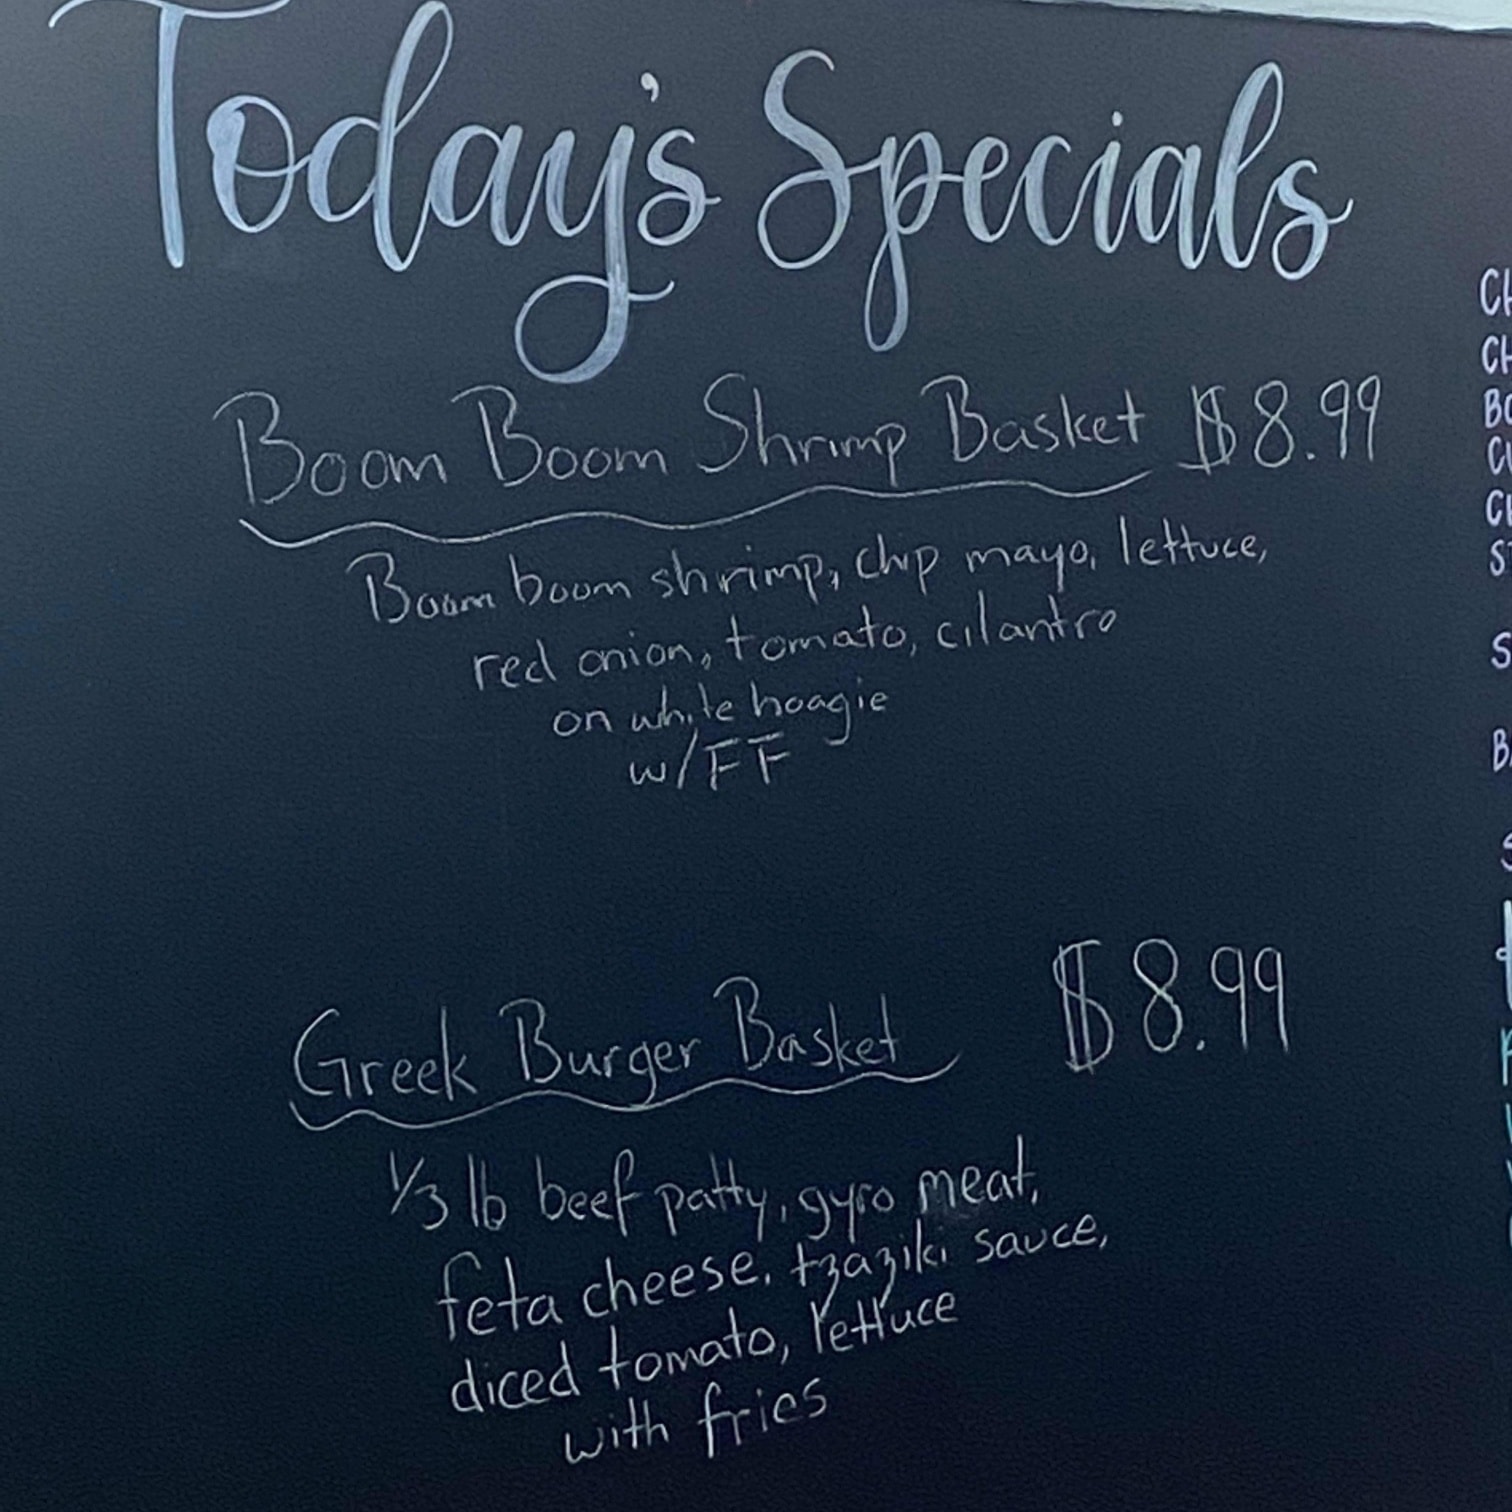 Today's Specials
Boom Boom Shrimp Basket $8.99
Boom boom shrimp, chip mayo, lettuce,
red onion, tomato, cilantro
on white hoagie
w/FF
Greek Burger Basket $8.99
1/3 lb beef patty, gyro meat,
feta cheese, tzaziki sauce,
diced tomato, lettuce
with fries